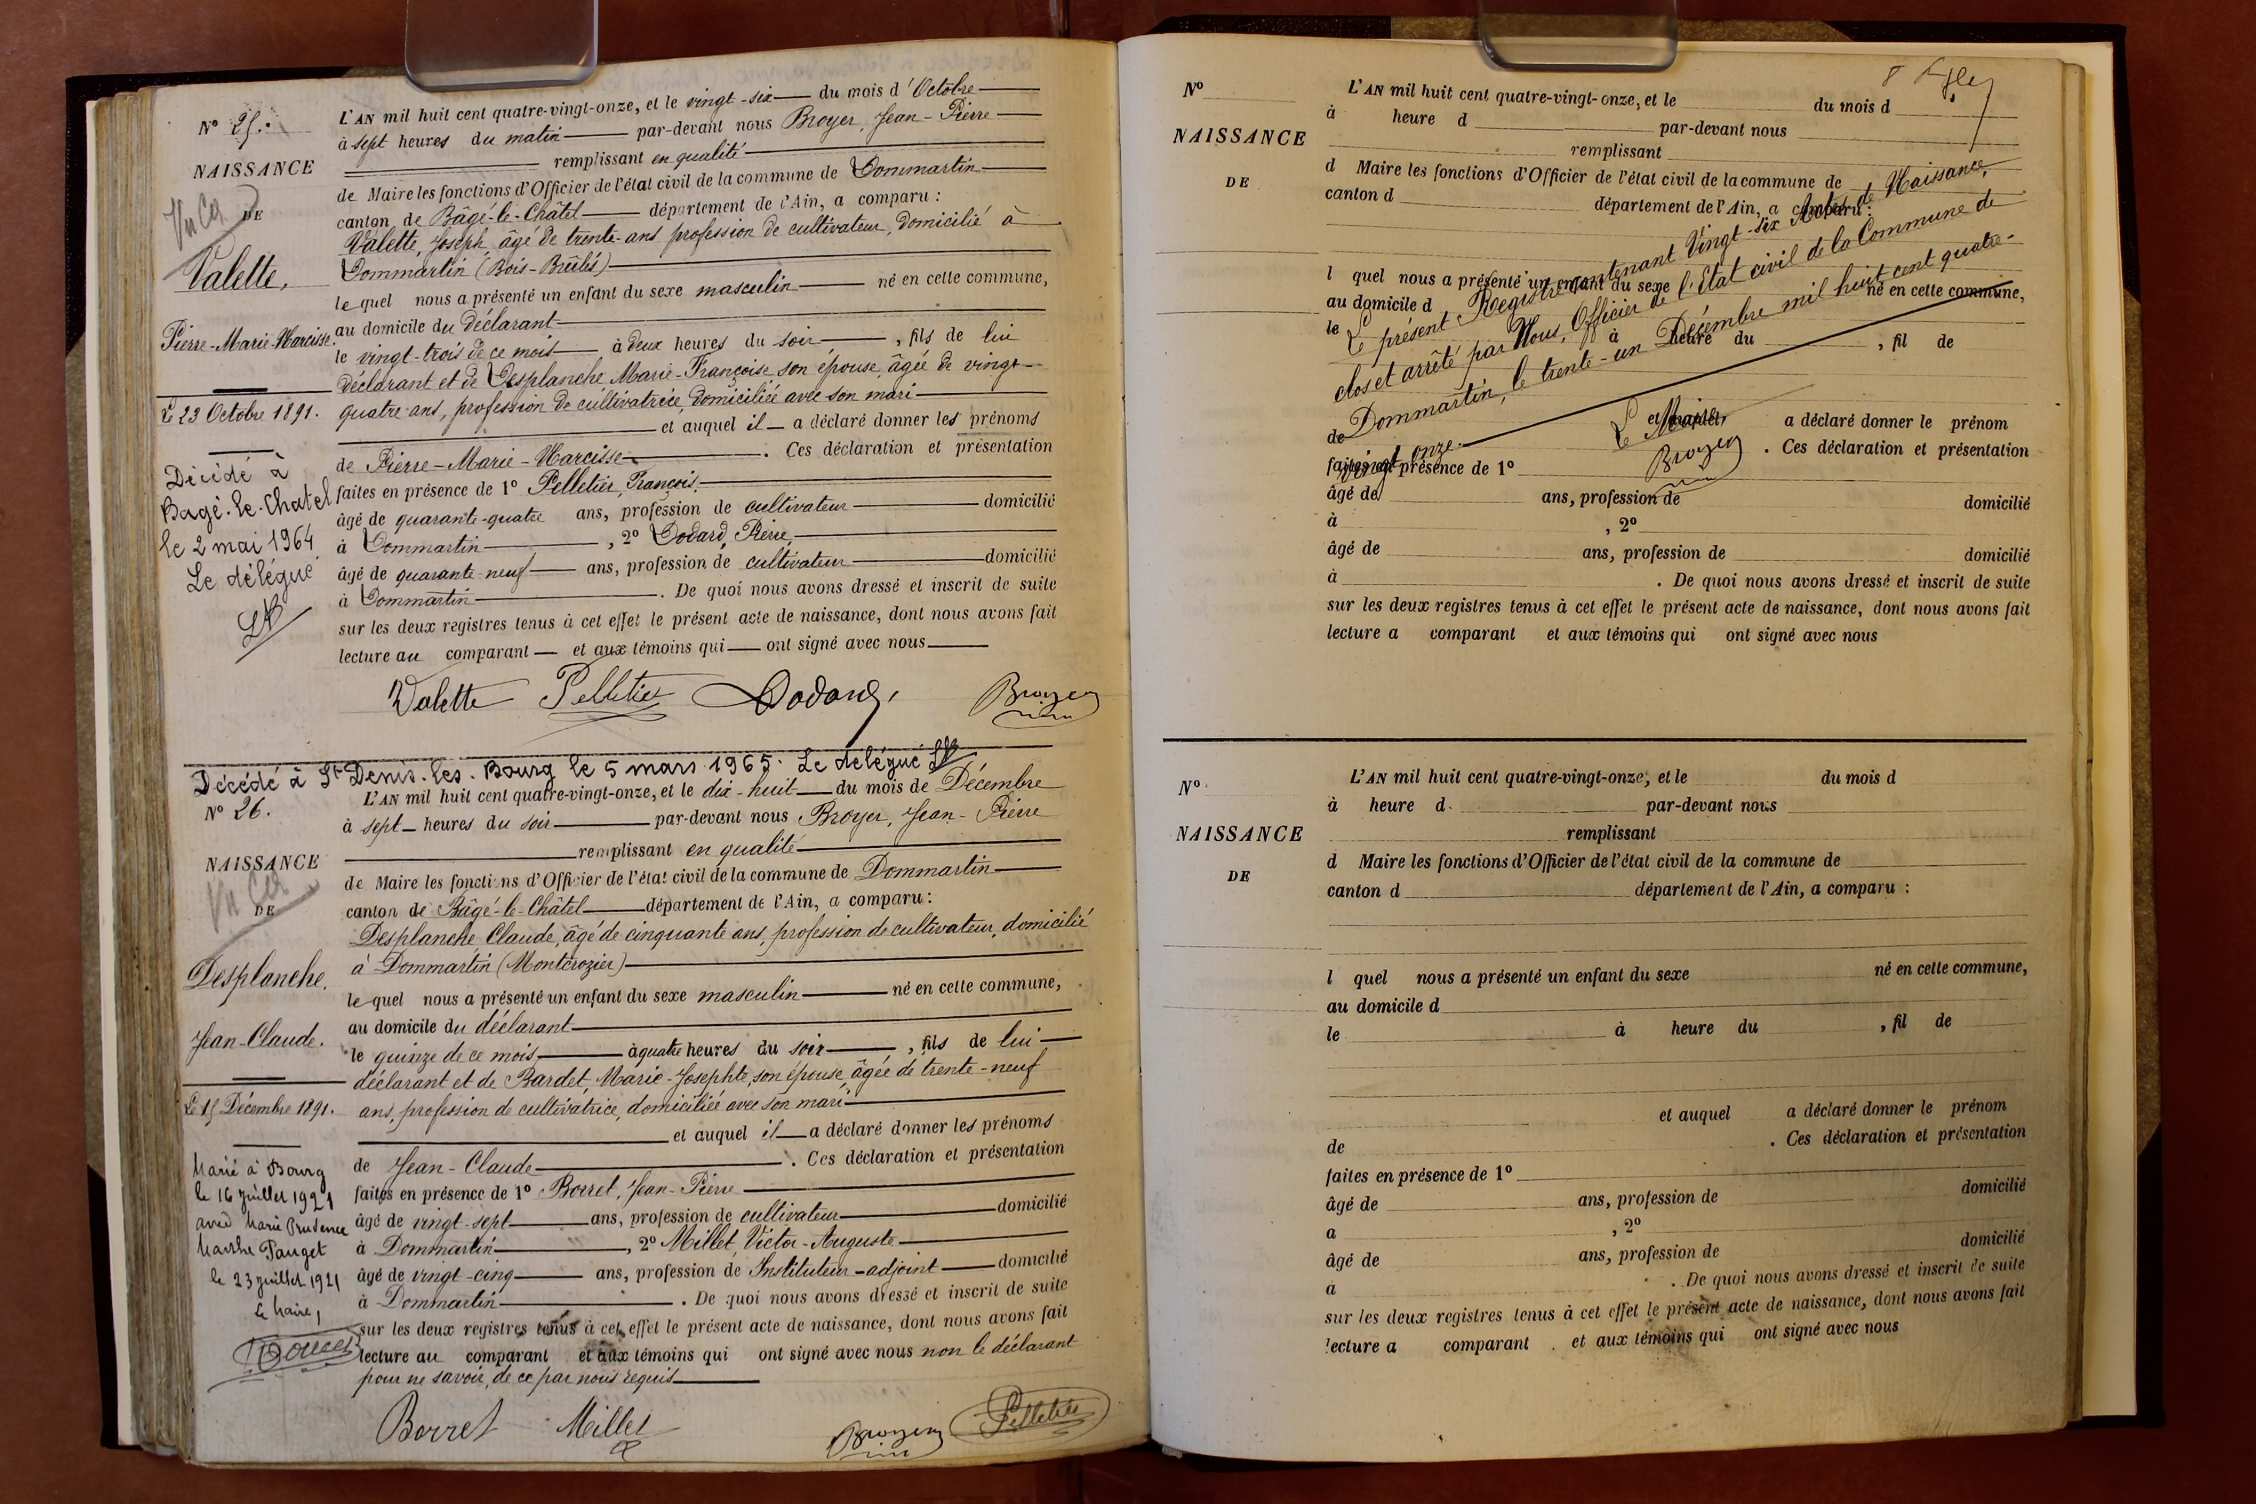 N° 25.
NAISSANCE
DE
Valette,
Pierre-Marie-Narcisse.
Le 23 Octobre 1891.
Décédé à
Bagé-le-Chatel
le 2 mai 1964
Le délégué
L'AN mil huit cent quatre-vingt-onze, et le vingt-six du mois d'Octobre
à sept heures du matin par-devant nous Broyer, Jean-Pierre
remplissant en qualité
de Maire les fonctions d'Officier de l'état civil de la commune de Dommartin
canton de Bâgé-le-Châtel département de l'Ain, a comparu :
Valette, Joseph, âgé de trente-ans, profession de cultivateur, domicilié à
Dommartin (Bois-Brûlés)
lequel nous a présenté un enfant du sexe masculin né en cette commune,
au domicile du déclarant
le vingt-trois de ce mois à deux heures du soir, fils de lui
déclarant et de Desplanche Marie-Françoise son épouse, âgée de vingt-
quatre-ans, profession de cultivatrice, domiciliée avec son mari
et auquel il a déclaré donner les prénoms
de Pierre-Marie-Narcisse. Ces déclaration et présentation
faites en présence de 1° Pelletier, François,
âgé de quarante-quatre ans, profession de cultivateur domicilié
à Dommartin, 2° Dodard, Pierre,
âgé de quarante-neuf ans, profession de cultivateur domicilié
à Dommartin. De quoi nous avons dressé et inscrit de suite
sur les deux registres tenus à cet effet le présent acte de naissance, dont nous avons fait
lecture au comparant et aux témoins qui ont signé avec nous
Valette Pelletier Dodard Broyer
Décédé à St Denis-les-Bourg le 5 mars 1965. Le délégué
N° 26.
NAISSANCE
DE
Desplanche.
Jean-Claude.
Le 15 Décembre 1891.
Marié à Bourg
le 16 juillet 1921
avec Marie Prudence
Marthe Pauget
le 23 juillet 1921
Le Maire,
L'AN mil huit cent quatre-vingt-onze, et le dix-huit du mois de Décembre
à sept heures du soir par-devant nous Broyer, Jean-Pierre
remplissant en qualité
de Maire les fonctions d'Officier de l'état civil de la commune de Dommartin
canton de Bâgé-le-Châtel département de l'Ain, a comparu :
Desplanche Claude, âgé de cinquante ans, profession de cultivateur, domicilié
à Dommartin (Montcrozier)
lequel nous a présenté un enfant du sexe masculin né en cette commune,
au domicile du déclarant
le quinze de ce mois à quatre heures du soir, fils de lui
déclarant et de Bardet, Marie-Josephte, son épouse, âgée de trente-neuf
ans, profession de cultivatrice, domiciliée avec son mari
et auquel il a déclaré donner les prénoms
de Jean-Claude. Ces déclaration et présentation
faites en présence de 1° Borret, Jean-Pierre
âgé de vingt-sept ans, profession de cultivateur domicilié
à Dommartin, 2° Millet, Victor-Auguste
âgé de vingt-cinq ans, profession de Instituteur-adjoint domicilié
à Dommartin. De quoi nous avons dressé et inscrit de suite
sur les deux registres tenus à cet effet le présent acte de naissance, dont nous avons fait
lecture au comparant et aux témoins qui ont signé avec nous non le déclarant
pour ne savoir, de ce par nous requis
Borret Millet Broyer Pelletier
N°
NAISSANCE
DE
L'AN mil huit cent quatre-vingt-onze, et le du mois d
à heure d par-devant nous
remplissant
d Maire les fonctions d'Officier de l'état civil de la commune de
canton d département de l'Ain, a comparu :
l quel nous a présenté un enfant du sexe né en cette commune,
au domicile d
le à heure du , fil de
et auquel a déclaré donner le prénom
de . Ces déclaration et présentation
faites en présence de 1°
âgé de ans, profession de domicilié
à , 2°
âgé de ans, profession de domicilié
à . De quoi nous avons dressé et inscrit de suite
sur les deux registres tenus à cet effet le présent acte de naissance, dont nous avons fait
lecture a comparant et aux témoins qui ont signé avec nous
Le présent Registre contenant Vingt-six Actes de Naissance,
clos et arrêté par Nous, Officier de l'État civil de la Commune de
Dommartin, le trente-un Décembre mil huit cent quatre-
vingt onze.
Le Maire,
Broyer
N°
NAISSANCE
DE
L'AN mil huit cent quatre-vingt-onze, et le du mois d
à heure d par-devant nous
remplissant
d Maire les fonctions d'Officier de l'état civil de la commune de
canton d département de l'Ain, a comparu :
l quel nous a présenté un enfant du sexe né en cette commune,
au domicile d
le à heure du , fil de
et auquel a déclaré donner le prénom
de . Ces déclaration et présentation
faites en présence de 1°
âgé de ans, profession de domicilié
a , 2°
âgé de ans, profession de domicilié
à . De quoi nous avons dressé et inscrit de suite
sur les deux registres tenus à cet effet le présent acte de naissance, dont nous avons fait
lecture a comparant et aux témoins qui ont signé avec nous